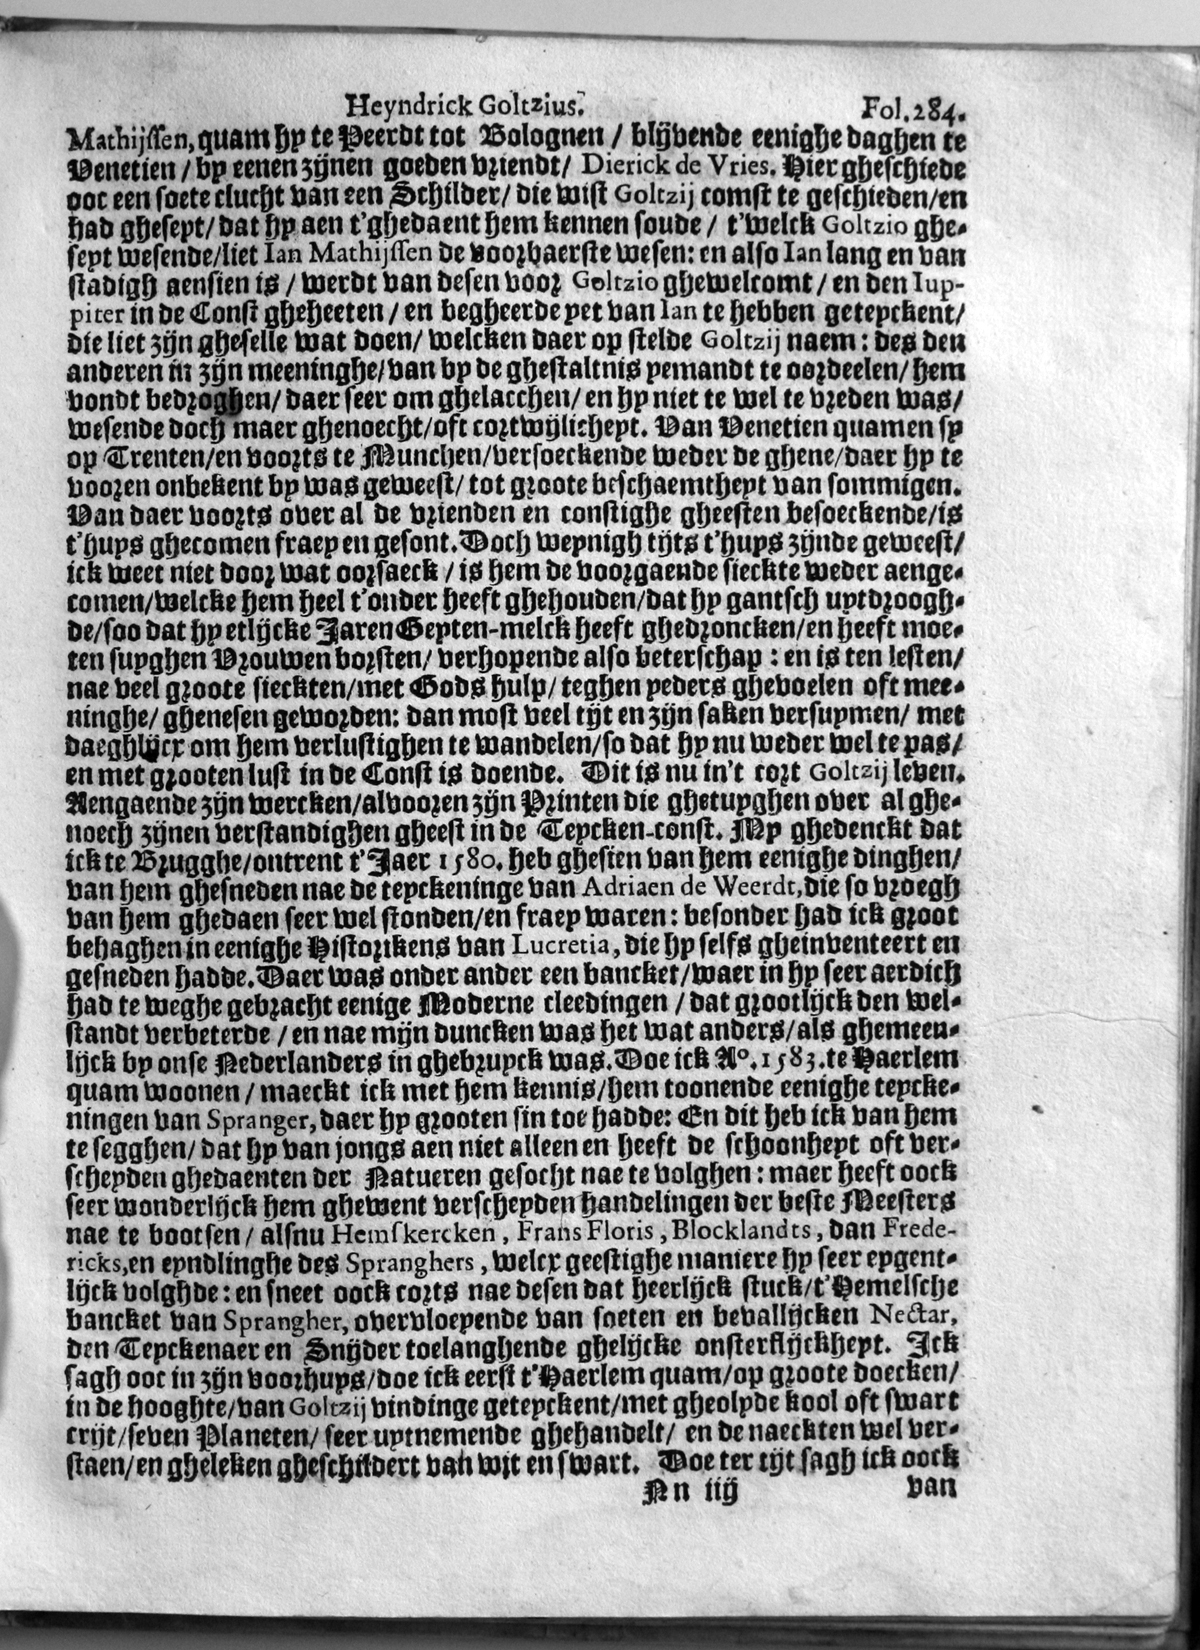 Heyndrick Goltzius. Fol.284.
Mathijssen, quam hy te Peerdt tot Bolognen / blijvende eenighe daghen te
Venetien / by eenen zijnen goeden vriendt / Dierick de Vries. Hier gheschiede
ooc een soete clucht van een Schilder / die wist Goltzij comst te geschieden / en
had gheseyt / dat hy aen t'ghedaent hem kennen soude / t'welck Goltzio ghe-
seyt wesende / liet Ian Mathijssen de voorbaerste wesen: en also Ian lang en van
stadigh aensien is / werdt van desen voor Goltzio ghewelcomt / en den Iup-
piter in de Const gheheeten / en begheerde yet van Ian te hebben geteyckent /
die liet zijn gheselle wat doen / welcken daer op stelde Goltzij naem: des den
anderen in zijn meeninghe / van by de ghestaltnis yemandt te oordeelen / hem
vondt bedroghen / daer seer om ghelacchen / en hy niet te wel te vreden was /
wesende doch maer ghenoecht / oft cortwijlicheyt. Van Venetien quamen sy
op Trenten / en voorts te Munchen / versoeckende weder de ghene / daer hy te
vooren onbekent by was geweest / tot groote beschaemtheyt van sommigen.
Van daer voorts over al de vrienden en constighe gheesten besoeckende / is
t'huys ghecomen fraey en gesont. Doch weynigh tijts t'huys zijnde geweest /
ick weet niet door wat oorsaeck / is hem de voorgaende sieckte weder aenge-
comen / welcke hem heel t'onder heeft ghehouden / dat hy gantsch uytdroogh-
de / soo dat hy etlijcke Jaren Geyten-melck heeft ghedroncken / en heeft moe-
ten suyghen Vrouwen borsten / verhopende also beterschap: en is ten lesten /
nae veel groote sieckten / met Gods hulp / teghen yeders ghevoelen oft mee-
ninghe / ghenesen geworden: dan most veel tijt en zijn saken versuymen / met
daeghlijcx om hem verlustighen te wandelen / so dat hy nu weder wel te pas /
en met grooten lust in de Const is doende. Dit is nu in't cort Goltzij leven.
Aengaende zijn wercken / alvooren zijn Printen die ghetuyghen over al ghe-
noech zijnen verstandighen gheest in de Teycken-const. My ghedenckt dat
ick te Brugghe / ontrent t'Jaer 1580. heb ghesien van hem eenighe dinghen /
van hem ghesneden nae de teyckeninge van Adriaen de Weerdt, die so vroegh
van hem ghedaen seer wel stonden / en fraey waren: besonder had ick groot
behaghen in eenighe Historikens van Lucretia, die hy selfs gheinventeert en
gesneden hadde. Daer was onder ander een bancket / waer in hy seer aerdich
had te weghe gebracht eenige Moderne cleedingen / dat grootlijck den wel-
standt verbeterde / en nae mijn duncken was het wat anders / als ghemeen-
lijck by onse Nederlanders in ghebruyck was. Doe ick Aº. 1583. te Haerlem
quam woonen / maeckt ick met hem kennis / hem toonende eenighe teycke-
ningen van Spranger, daer hy grooten sin toe hadde: En dit heb ick van hem
te segghen / dat hy van jongs aen niet alleen en heeft de schoonheyt oft ver-
scheyden ghedaenten der Natueren gesocht nae te volghen: maer heeft oock
seer wonderlijck hem ghewent verscheyden handelingen der beste Meesters
nae te bootsen / alsnu Hemskercken, Frans Floris, Blocklandts, dan Frede-
ricks, en eyndlinghe des Spranghers, welcx geestighe maniere hy seer eygent-
lijck volghde: en sneet oock corts nae desen dat heerlijck stuck / t'Hemelsche
bancket van Sprangher, overvloeyende van soeten en bevallijcken Nectar,
den Teyckenaer en Snijder toelanghende ghelijcke onsterflijckheyt. Ick
sagh ooc in zijn voorhuys / doe ick eerst t'Haerlem quam / op groote doecken /
in de hooghte / van Goltzij vindinge geteyckent / met gheolyde kool oft swart
crijt / seven Planeten / seer uytnemende ghehandelt / en de naeckten wel ver-
staen / en gheleken gheschildert van wit en swart. Doe ter tijt sagh ick oock
Nn iij van